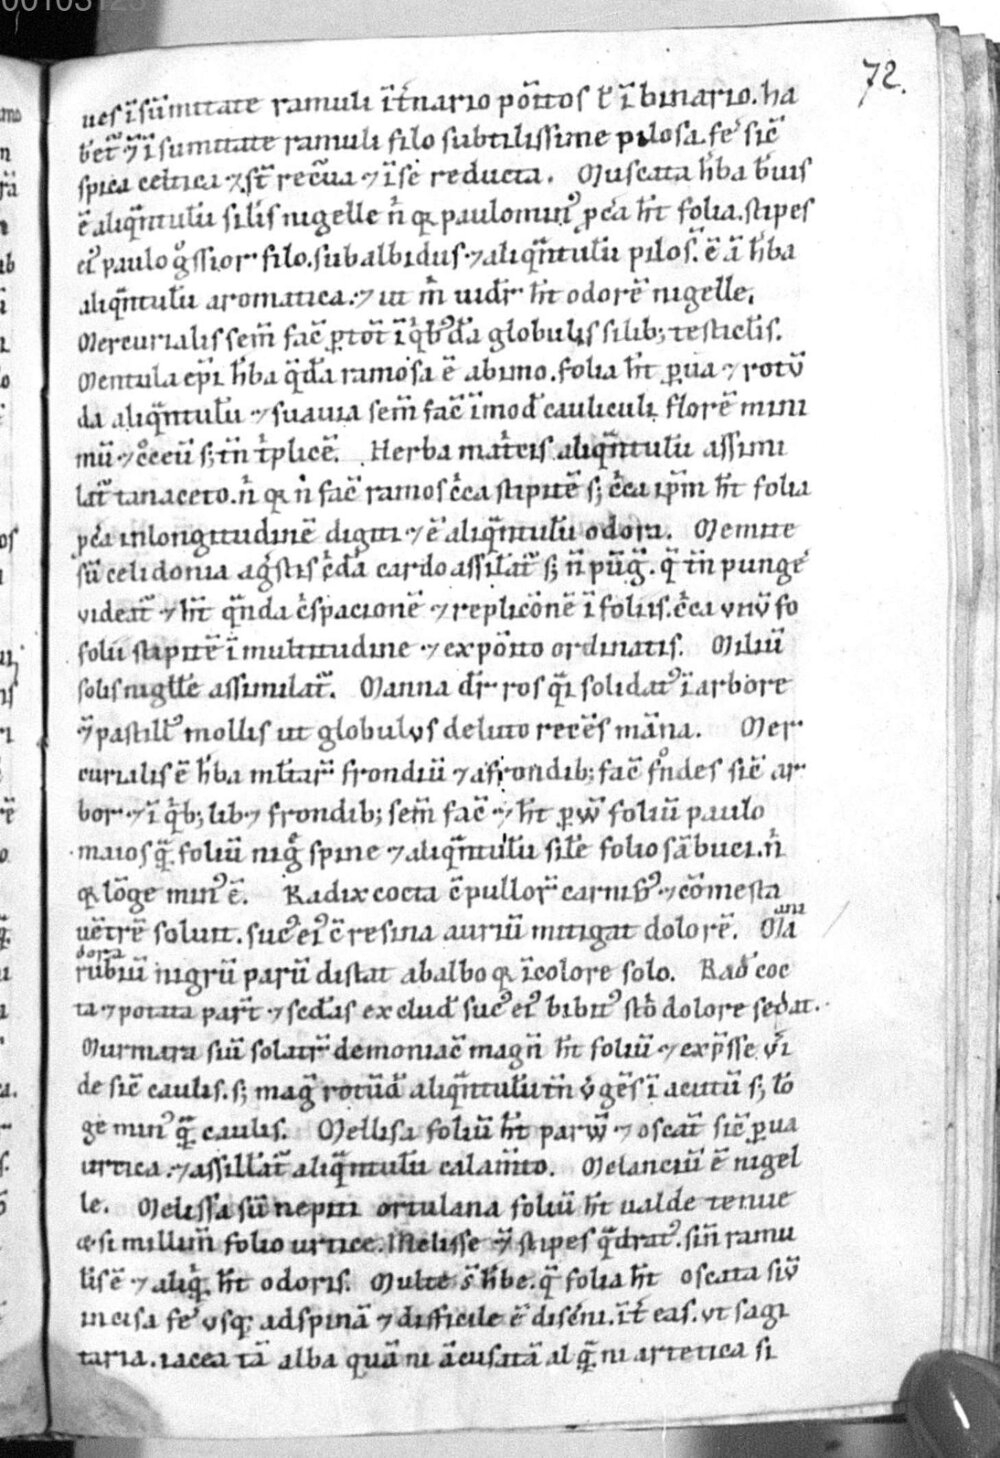 00103123
72.
ues ī sūmitate ramuli īt̄nario pōītos t̄ ī binario. ha
bet̄ ⁊ ī sumitate ramuli filo subtilissime pilosa. fe sic̄
spica celtica ⁊ st̄ rec̄ua ⁊ ī se reducta. Muscata h̄ba buis
ē aliqn̄tulū silis nigelle n̄ paulomin᾽ pc̄a ht̄ folia. stipes
ei᾽ paulo gͦssior filo. subalbidus ⁊ aliqn̄tulū pilos̄. ē ā h̄ba
aliqn̄tulū aromatica. ⁊ ut m̄ uidr̄ ht̄ odorē nigelle.
Mercurialis sem̄ fac̄ ꝑtot̄ ī qͥb᾽dā globulis silib; testicl̄is.
Mentula epī h̄ba q̄dā ramosa ē abimo. folia ht̄ ꝑua ⁊ rotū
da aliqn̄tulū ⁊ suauia sem̄ fac̄ ī mod̄ cauliculi florē mini
mū ⁊ cͦceū s; tn̄ tͥplicē. Herba matͥcis aliqn̄tulū assimi
lat̄ tanaceto. n̄ n̄ fac̄ ramos cͥca stipitē s; cͥca ip̄m ht̄ folia
pc̄a in longitudinē digiti ⁊ ē aliqn̄tulū odora. Memite
sū celidonia agͥstis cardo assilat̄ s; n̄ . q̄ tn̄ punge᾽
videat̄ ⁊ ht̄ qn̄da cͥspacionē ⁊ replicōnē ī foliis. cͥca vnū fo
foliū stipitē ī multitudine ⁊ expōīto ordinatis. Miliū
solis nigll̄e assimilat̄. Manna dr̄ ros qͣi solidat᾽ ī arbore
⁊ pastill᾽ mollis ut globulus deluto recēs māna. Mer
curialis ē h̄ba mltar̄ frondiū ⁊ a frondib; fac̄ fͦndes sic̄ ar
bor ⁊ ī qͥb; lib ⁊ frondib; sem̄ fac̄ ⁊ ht̄ ꝑuū foliū paulo
maios q̄ foliū nigͦ spine ⁊ aliqn̄tulū sile folio sābuci. n̄
lōge min᾽ ē. Radix cocta c̄ pullor̄ carnib᾽ ⁊ cōmesta
uētrē soluit. suc᾽ ei᾽ c̄ resina auriū mitigat dolorē. Ma
ana
dora
rubiū nigrū parū distat ab albo īcolore solo. Rad̄ coc
ta ⁊ potata part̄ ⁊ sed̄is exclud̄ suc᾽ ei᾽ bibit᾽ sto dolore sedat.
Murmara siū solatr̄ demoniac̄ magn̄ ht̄ foliū ⁊ exp̄sse vͥi
de sic̄ caulis. s; maḡ rotūd̄ aliqn̄tulū tn̄ vgēs ī acutū s; lō
ge min᾽ q̄ caulis. Mellisa foliū ht̄ paruū ⁊ oscat̄ sic̄ ꝑua
urtica. ⁊ assillat̄ aliqn̄tulū calamīto. Melanciū ē nigel
le. Melissa siū nepiti ortulana foliū ht̄ ualde tenue
⁊ simillim̄ folio urtice. Melisse ⁊ stipes qͣdrat᾽. sin̄ ramu
lis ē ⁊ aliq̄ ht̄ odoris. Multe s̄ h̄be. q̄ folia ht̄ oscata siū
incisa fe᾽ usq; ad spinā ⁊ difficile ē discͥni. īt̄ eas. vt sagi
taria. iacea tā alba quā ni ācusatā al q̄ ni artetica si